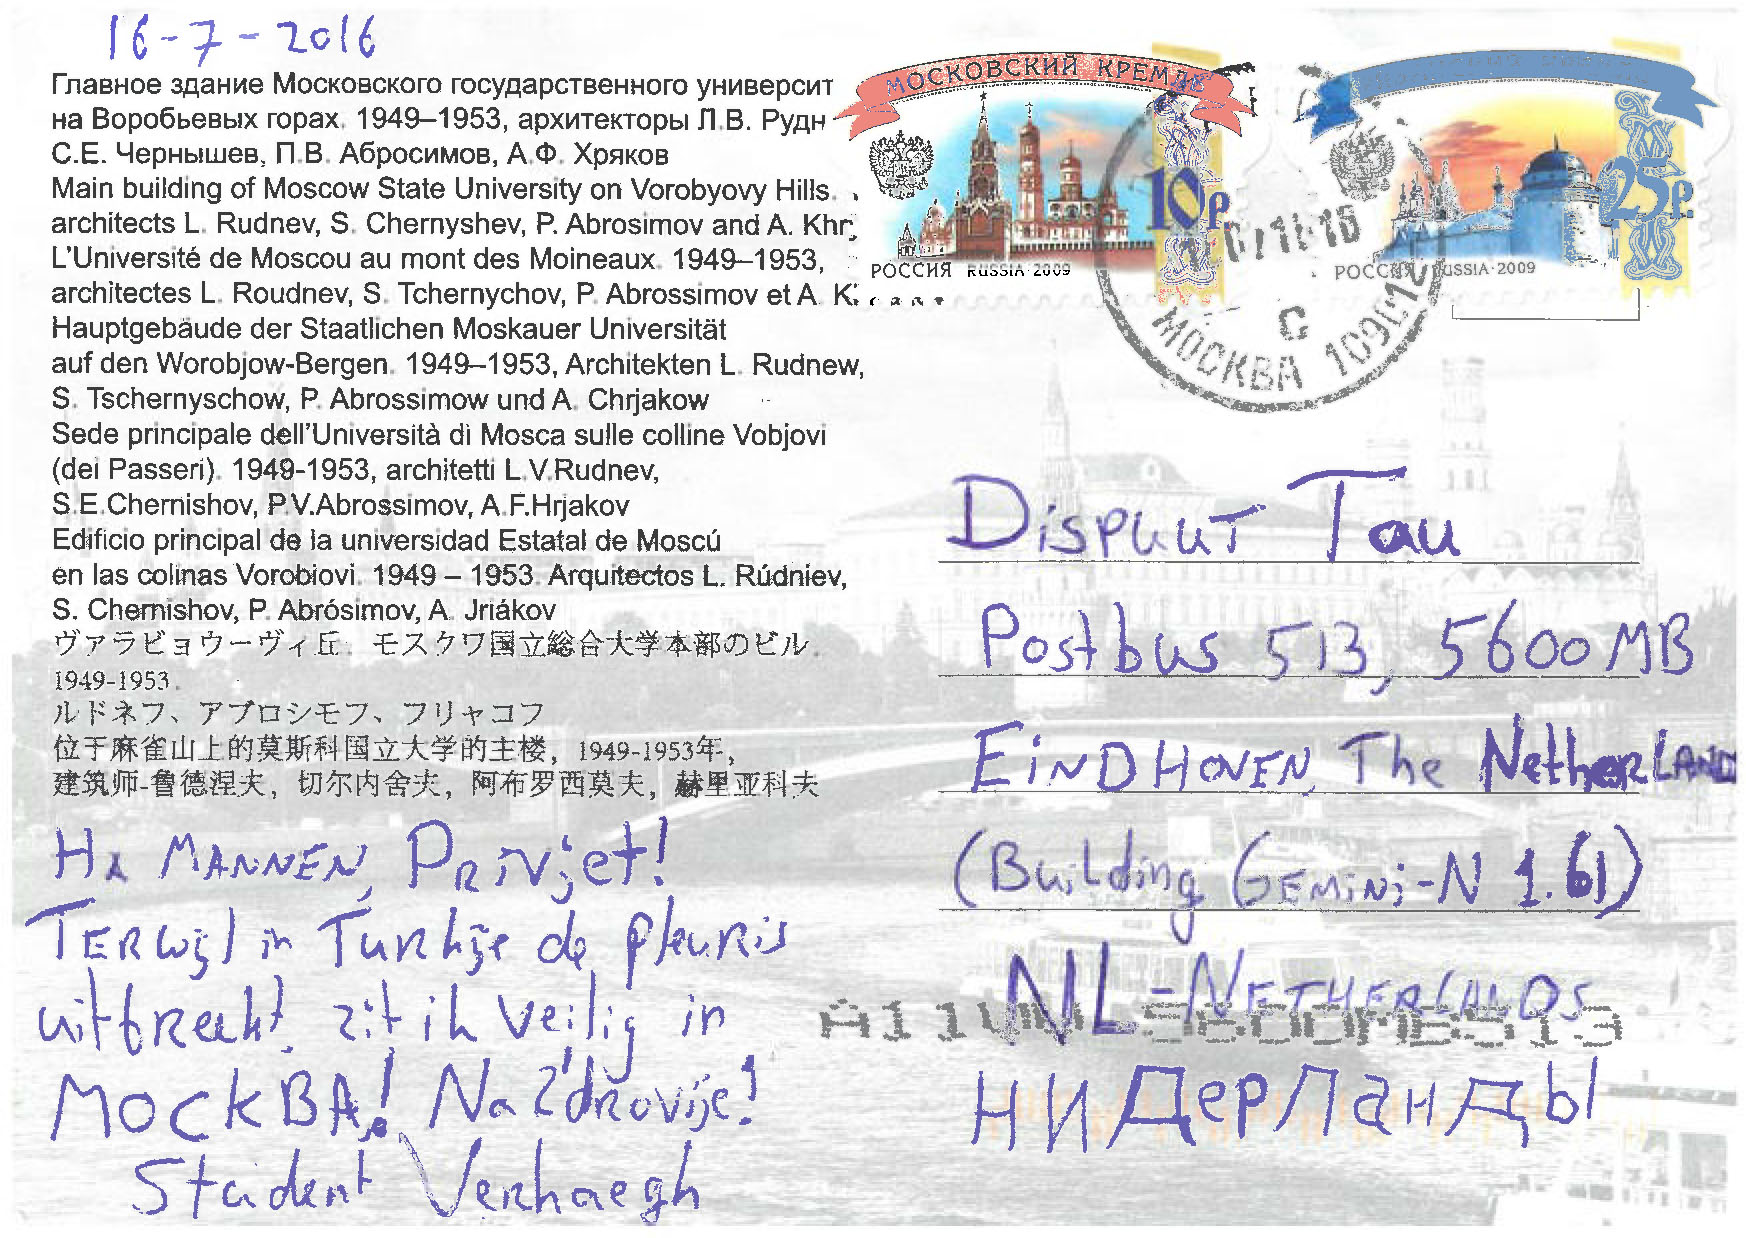 16-7-2016
Главное здание Московского государственного университ
на Воробьевых горах. 1949–1953, архитекторы Л.В. Рудн
С.Е. Чернышев, П.В. Абросимов, А.Ф. Хряков
Main building of Moscow State University on Vorobyovy Hills.
architects L. Rudnev, S. Chernyshev, P. Abrosimov and A. Khr
L'Université de Moscou au mont des Moineaux. 1949–1953,
architectes L. Roudnev, S. Tchernychov, P. Abrossimov et A. K
Hauptgebäude der Staatlichen Moskauer Universität
auf den Worobjow-Bergen. 1949–1953, Architekten L. Rudnew,
S. Tschernyschow, P. Abrossimow und A. Chrjakow
Sede principale dell'Università di Mosca sulle colline Vobjovi
(dei Passeri). 1949-1953, architetti L.V.Rudnev,
S.E.Chernishov, P.V.Abrossimov, A.F.Hrjakov
Edificio principal de la universidad Estatal de Moscú
en las colinas Vorobiovi. 1949 – 1953. Arquitectos L. Rúdniev,
S. Chernishov, P. Abrósimov, A. Jriákov
ヴァラビョウーヴィ丘. モスクワ国立総合大学本部のビル.
1949-1953.
ルドネフ、アブロシモフ、フリャコフ
位于麻雀山上的莫斯科国立大学的主楼，1949-1953年，
建筑师-鲁德涅夫，切尔内舍夫，阿布罗西莫夫，赫里亚科夫
Ha MANNEN, Privjet!
TERWijl in Turkije de pleuris
uitbreekt, zit ik veilig in
МОСКВА! Na Zdrovije!
Student Verhaegh
МОСКОВСКИЙ КРЕМЛЬ
10р
РОССИЯ RUSSIA·2009
25р.
РОССИЯ RUSSIA·2009
С
МОСКВА 109012
DISPUUT Tau
Postbus 513, 5600MB
EINDHOVEN, The NetherLANDS
(Building GEMINi-N 1.61)
NL-NETHERLANDS
5600MB513
НИДерЛанДЫ